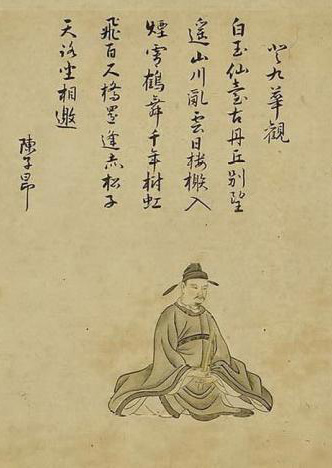 登九華観
白玉仙臺古丹丘別望
遙山川亂雲日樓榭入
煙霄鶴舞千年樹虹
飛百尺橋還逢赤松子
天路坐相邀
陳子昂